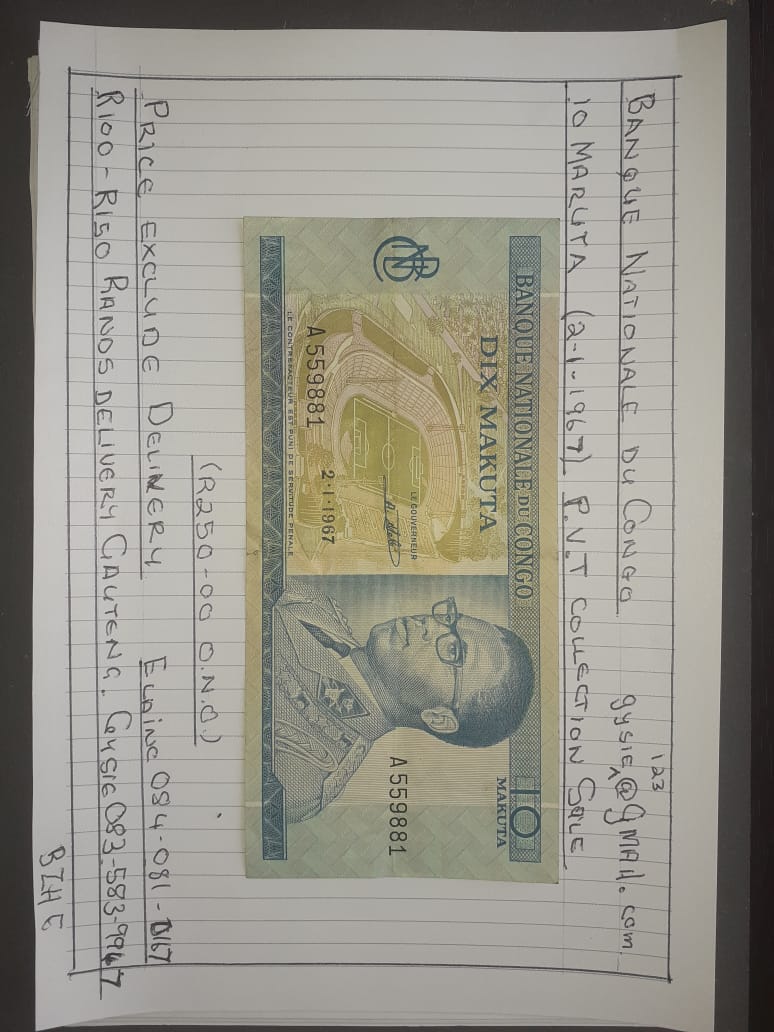 BANQUE NATIONALE DU CONGO gysie123@gmail.com.
10 MAKUTA (2-1-1967) P.V.T COLLECTION SALE
BANQUE NATIONALE DU CONGO
DIX MAKUTA
10
MAKUTA
LE GOUVERNEUR
A559881
2·1·1967
A559881
LE CONTREFACTEUR EST PUNI DE SERVITUDE PENALE
BNC
(R250-00 O.N.O.)
PRICE EXCLUDE DELIVERY ELAINE 084-081-0167
R100-R150 RANDS DELIVERY GAUTENG. GYSIE 083-583-9947